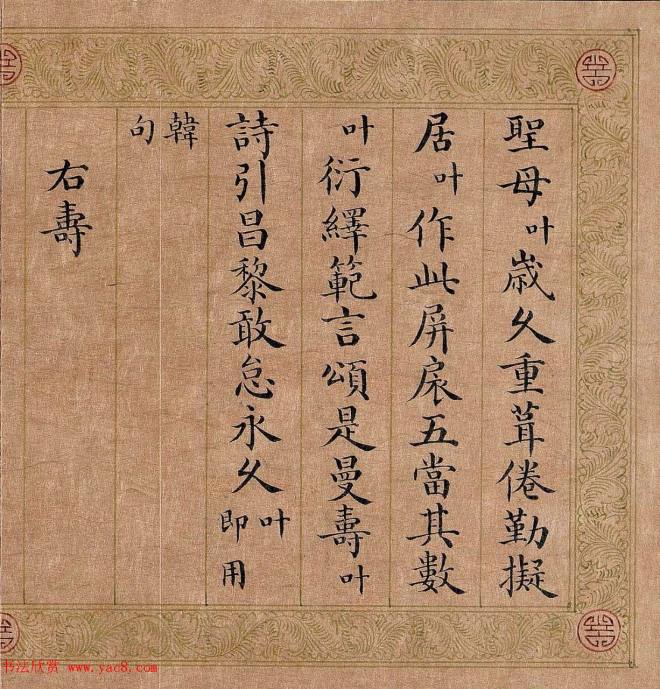 聖母叶歲久重葺倦勤擬
居叶作此屏扆五當其數
叶衍繹範言頌是曼壽叶
詩引昌黎敢怠永久叶即用
韓句
右壽
书法欣赏 www.yac8.com